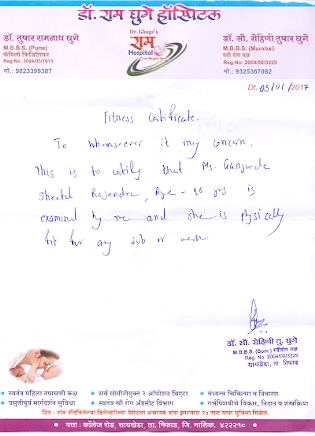 डॉ. राम घुगे हॉस्पिटल
डॉ. तुषार रामनाथ घुगे
M.B.B.S. (Pune)
फॅमिली फिजिशियन
Reg.No. 2004/03/1913
मो.: 9823399387
Dr. Ghuge's
राम
Hospital
डॉ. सौ. रोहिणी तुषार घुगे
M.B.B.S. (Mumbai)
स्त्री रोग तज्ञ
Reg.No. 2004/09/3229
मो.: 9325367982
Dt. 05/01/2017
Fitness Certificate.
To Whomsoever it may concern.
This is to certify that Ms. Gangurde
Sheetal Rajendra, Age - yrs is
examined by me and she is physically
fit for any job or work
डॉ. सौ. रोहिणी तु. घुगे
M.B.B.S. (Bom.) स्त्रीरोग तज्ञ
Reg. No. 2004/09/3229
सायखेडा, ता. निफाड
• स्वतंत्र महिला तपासणी कक्ष
• सर्व सोयींनीयुक्त २ ऑपरेशन थिएटर
• वंध्यत्व चिकित्सा व निवारण
• प्रसुतीपूर्व मार्गदर्शन सुविधा
• स्वतंत्र स्त्री रोग अ‍ॅडमीट विभाग
• गर्भपिशवीचे विकार, निदान व शस्त्रक्रिया
पत्ता : कॉलेज रोड, सायखेडा, ता. निफाड, जि. नाशिक. ४२२२१०